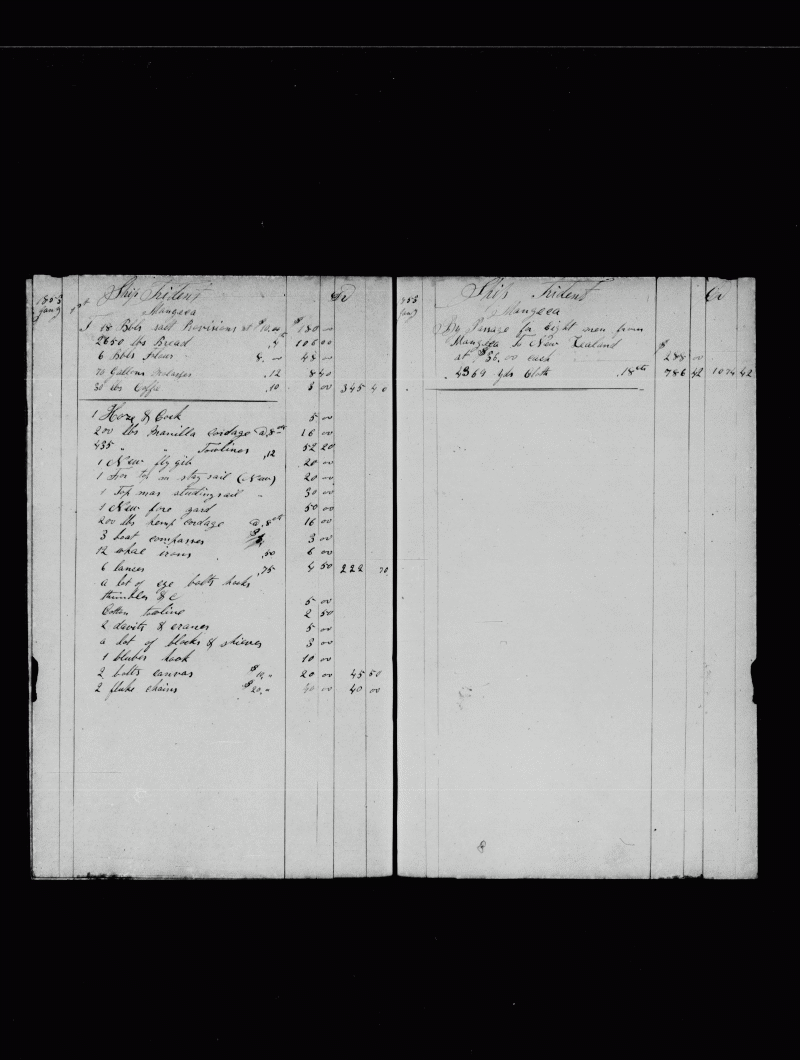 1855 Ship Trident Dr
Jany 1st Mangaea
T 18 Bbls salt Provisions at $10.00 $180 00
2650 lbs Bread ,4 106 00
6 Bbls Flour 8, 00 48 00
70 Gallons Molasses ,12 8 40
30 lbs Coffe ,10 3 00 345 40
1 Hose & Cock 5 00
200 lbs Manilla cordage @,8 cts 16 00
435 " " Towlines ,12 52 20
1 New fly gib 20 00
1 Fore top m stay sail (New) 20 00
1 Top mas studingsail 30 00
1 New fore yard 50 00
200 lbs hemp cordage @,8 cts 16 00
3 boat compasses 3 00
12 whale irons ,50 6 00
6 lances ,75 4 50 222 70
a lot of eye bolts hooks
thimbles & c 5 00
Cotton towline 2 50
2 davits & cranes 5 00
a lot of blocks & shieves 3 00
1 bluber hook 10 00
2 bolts canvas $10,, 20 00 45 50
2 fluke chains $20,, 40 00 40 00
1855 Ship Trident Cr
Jany Mangaea
By Passage for Eight men from
Mangaea to New Zealand $
at $36.00 each 288 00
4369 yds Cloth ,18 cts 786 42 1074 42
8